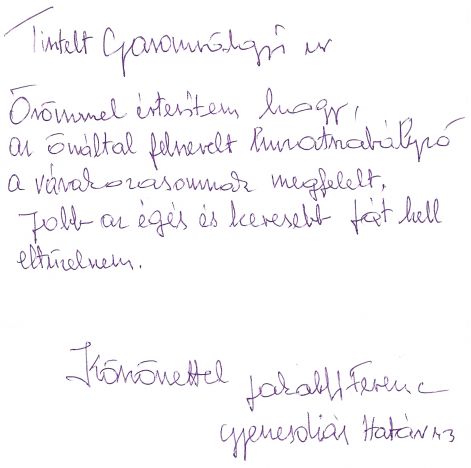 Tisztelt Gázromboló úr
Örömmel értesítem hogy,
az önáltal felszerelt huzatszabályzó
a várakozásomnak megfelelt.
Jobb az égés és kevesebb fát kell
eltüzelnem.
Köszönettel Jakabffi Ferenc
Gyenesdiás Határ 43